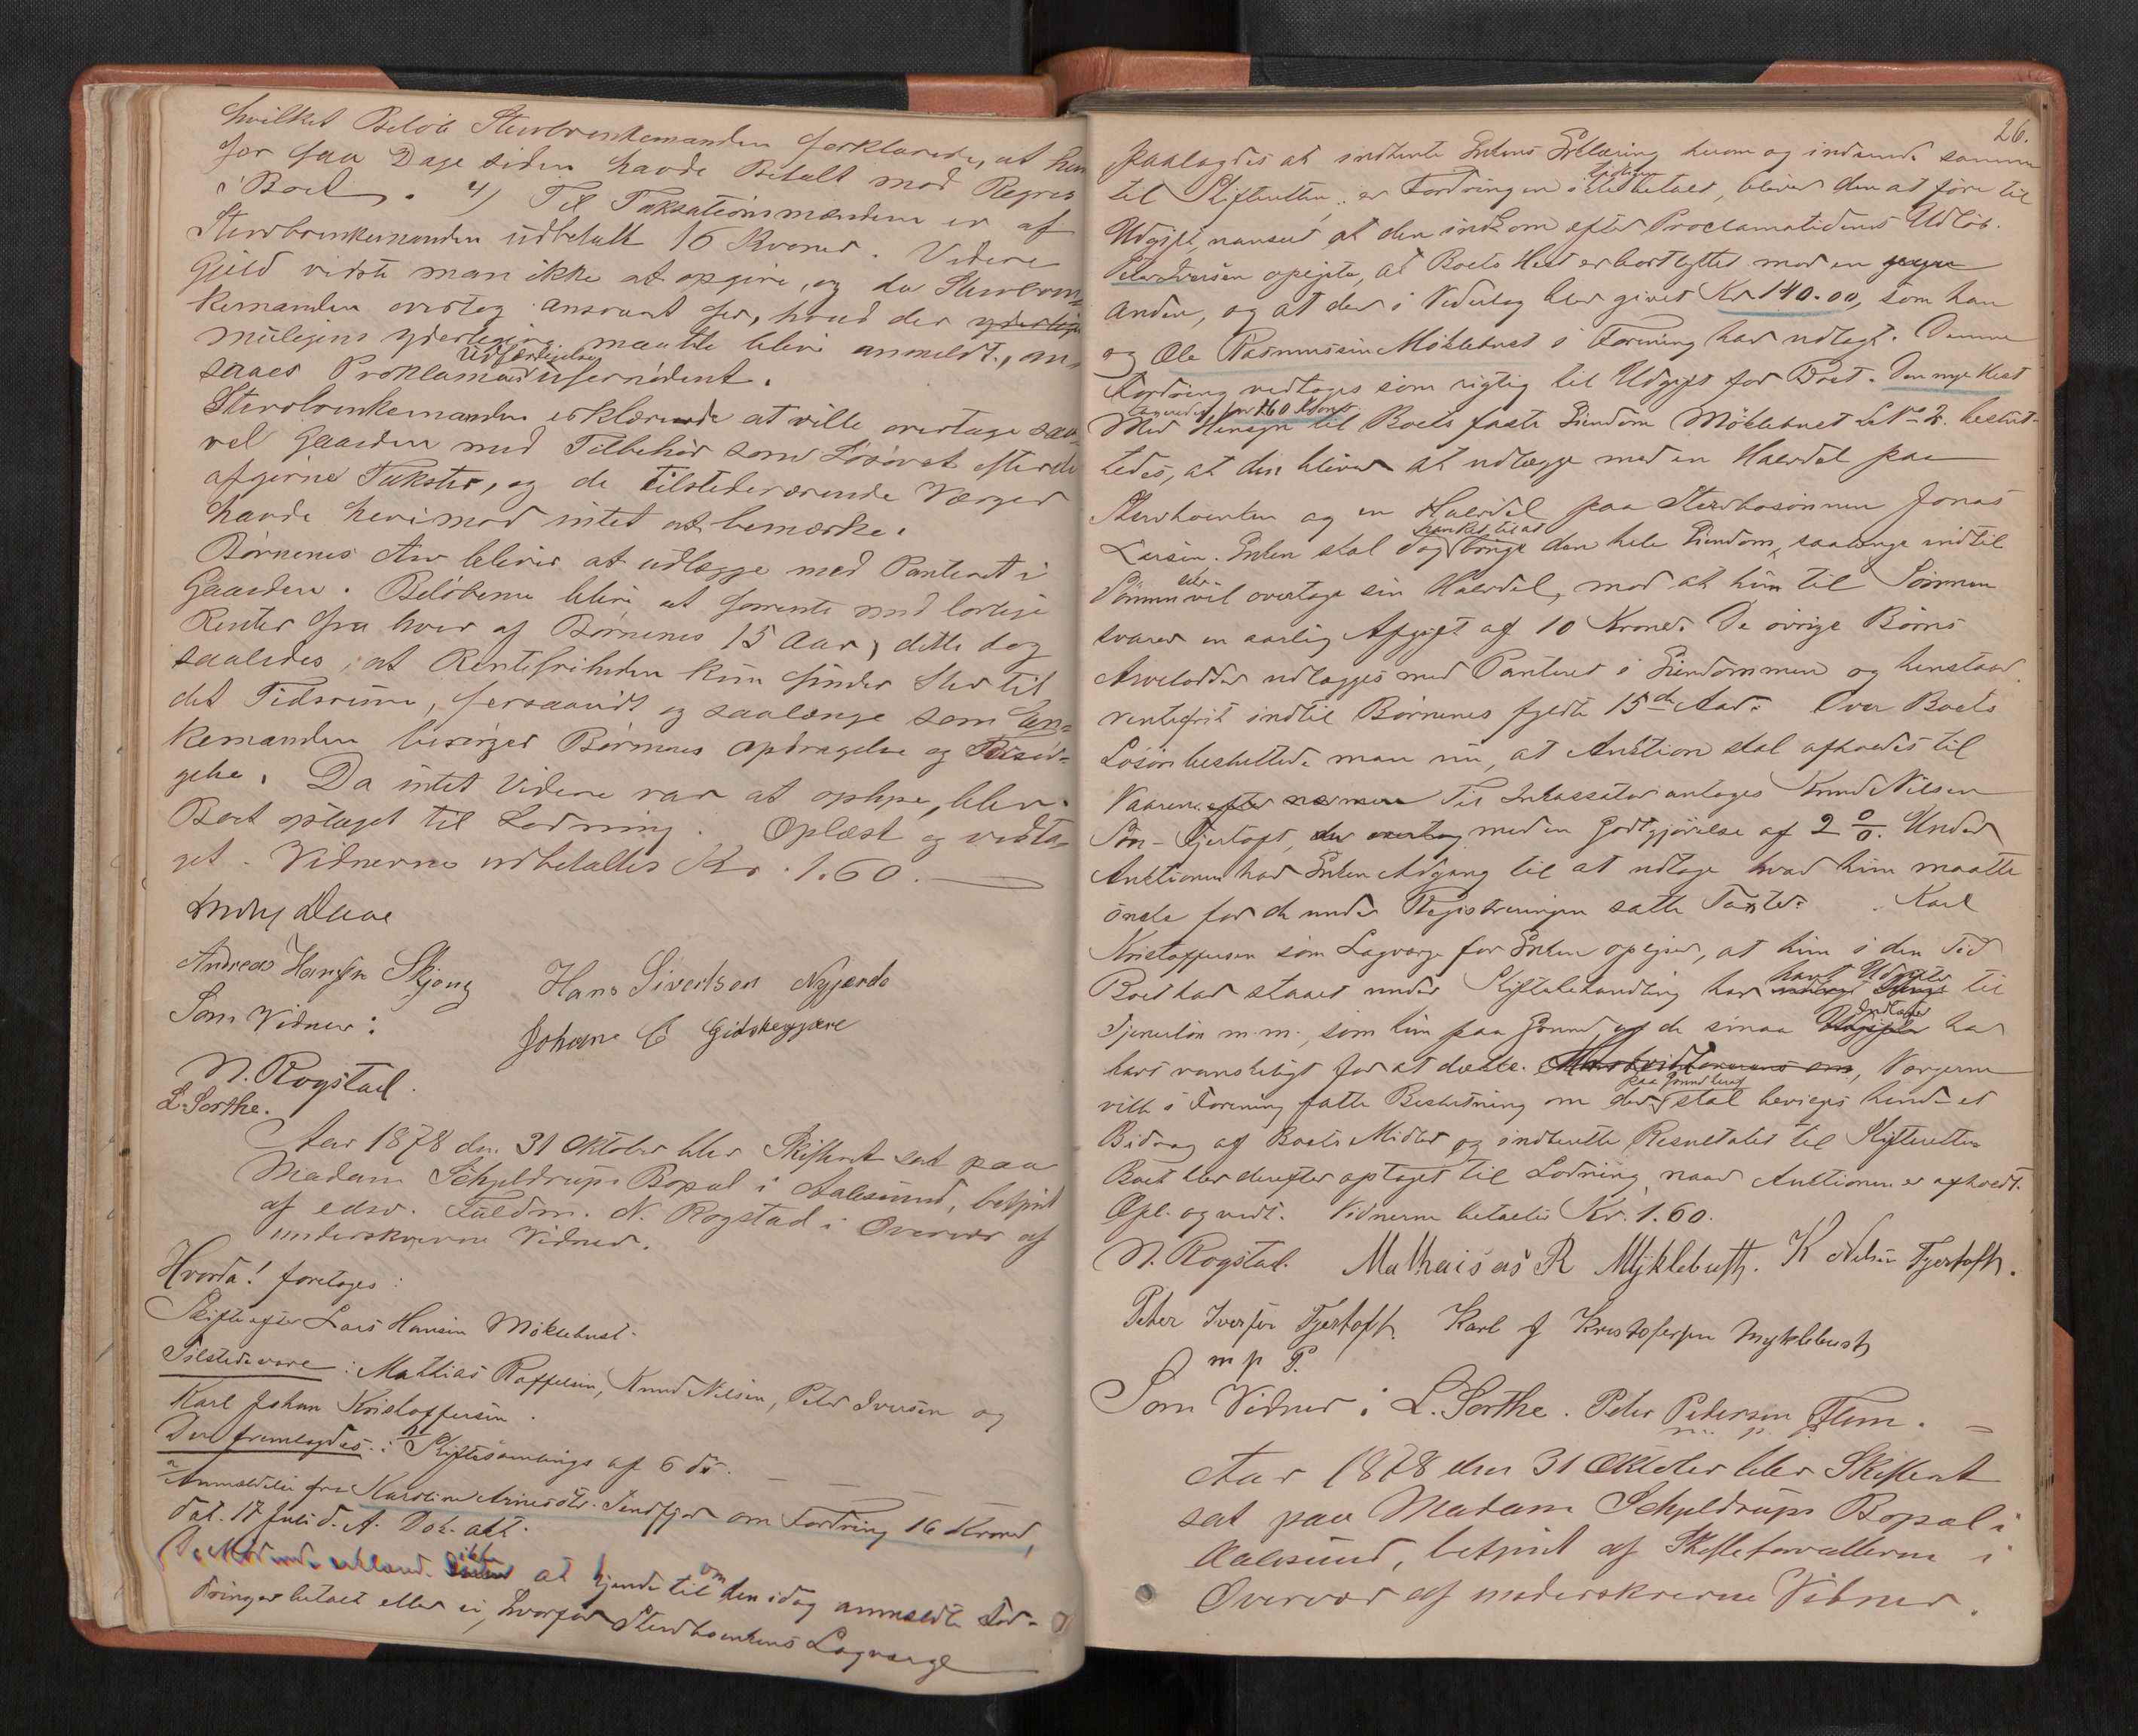 hvilket Beløb Stervbenkemanden forklarede, at han
for faa Dage siden havde Betalt mod Regres
i Boet. 4) Til Taksationsmændene er af
Stervbenkemanden udbetalt 16 Kroner. Videre
Gjeld vidste man ikke at opgive, og da Stervben-
kemanden overtog ansvaret for, hvad der yderlige
muligens yderligere maatte blive anmeldt, an-
saaes Proklamas Udfærdigelse ufornødent.
Stervbenkemanden erklærede at ville overtage saa-
vel Gaarden med Tilbehør som Løsøret efter de
afgivne Takster, og de tilstedeværende Værger
havde herimod intet at bemærke.
Børnenes Arv bliver at udlægge med Panteret i
Gaarden. Beløbene blive at forrente med lovlige
Renter fra hver af Børnenes 15 Aar, dette dog
saaledes, at Rentefriheden kun finder Sted til
det Tidsrum, forsaavidt og saalænge som En-
kemanden besørger Børnenes Opdragelse og Forsør-
gelse. Da intet Videre var at oplyse, blev
Boet optaget til Lodning. Oplæst og vedta-
get. Vidnerne udbetaltes Kr. 1.60.
Andreas Hansen Skjong Hans Sivertsen Nygjerde
Som Vidner: Johane E Gidskegjære
N. Rogstad.
L. Sorthe.
Aar 1878 den 31 Oktober blev Skifteret sat paa
Madam Schjeldrups Bopæl i Aalesund, betjent
af edsv. Fuldm. N. Rogstad i Overvær af
underskrevne Vidner.
Hvorda! foretoges:
Skifte efter Lars Hansen Møklebust.
Tilstede vare: Mathias Raffelsen, Knud Nilsen, Peter Iversen og
Karl Johan Kristoffersen.
Der fremlagdes: Skiftesamlings af 6 ds.
Anmeldelse fra Karoline Arnesdtr. om Fordring 16 Kroner,
dat. 17 Juli d. A. Dok. att.
De Mødende erklærede ikke at kjende til om den idag anmeldte For-
dring er betalt eller ei, hvorfor Stervboenkens Lagværge
26.
paalagdes at indhente Enkens Erklæring herom og indsende samme
til Skifteretten; er Fordringen ikke betalt, bliver den at føre til
Udgift, uanseet at den indkom efter Proclamatidens Udløb.
Peter Iversen opgjev, at Boets Hest er bortbyttet mod en
anden, og at der i Vederlag blev givet Kr. 140.00, som han
og Ole Rasmussen Møklebust i Forening har udlagt. Denne
Fordring vedtoges som rigtig til Udgift for Boet. Den nye Hest
for 160 Kroner
Med Hensyn til Boets faste Eiendom Møklebust L№ 2 beslut-
tedes, at den bliver at udlægge med en Halvdel paa
Stervboenken og en Halvdel paa Stervbosønnen Jonas
Larsen. Enken skal dog bruge den hele Eiendom, saalænge indtil
Sønnen selv vil overtage sin Halvdel, mod at hun til Sønnen
svarer en aarlig Afgift af 10 Kroner. De øvrige Børns
Arvelodder udlægges med Panteret i Eiendommen og henstaar
rentefrit indtil Børnenes fyldte 15de Aar. Over Boets
Løsøre besluttede man nu, at Auktion skal afholdes til
Vaaren. Til Inkassator antoges Knud Nilsen
Søn-Fjertoft, med en Godtgjørelse af 2 %. Under
Auktionen har Enken Adgang til at udtage hvad hun maatte
ønske for de under Registreringen satte Taxter. Karl
Kristoffersen som Lagværge for Enken oplyser, at hun i den Tid
Boet har staaet under Skiftebehandling har havt Udgifter til
Tjenerløn m.m., som hun paa Grund af de smaa Indtægter har
havt vanskeligt for at dække. Værgerne
ville i Forening fatte Beslutning om der paa Grund heraf skal bevilges hende et
Bidrag af Boets Midler og indberette Resultatet til Skifteretten.
Boet blev derefter optaget til Lodning naar Auktionen er afholdt.
Opl. og vedt. Vidnerne betaltes Kr. 1.60.
N. Rogstad. Mathaisas R Myklebust. K Nilsen Fjertoft.
Peter Iversen Fjertoft. Karl J Kristofersen Myklebust
m p P.
Som Vidner: L. Sorthe. Peter Pedersen Flem.
m. p. P.
Aar 1878 den 31 Oktober blev Skifteret
sat paa Madam Schjeldrups Bopæl i
Aalesund, betjent af Skifteforvalteren i
Overvær af underskrevne Vidner.